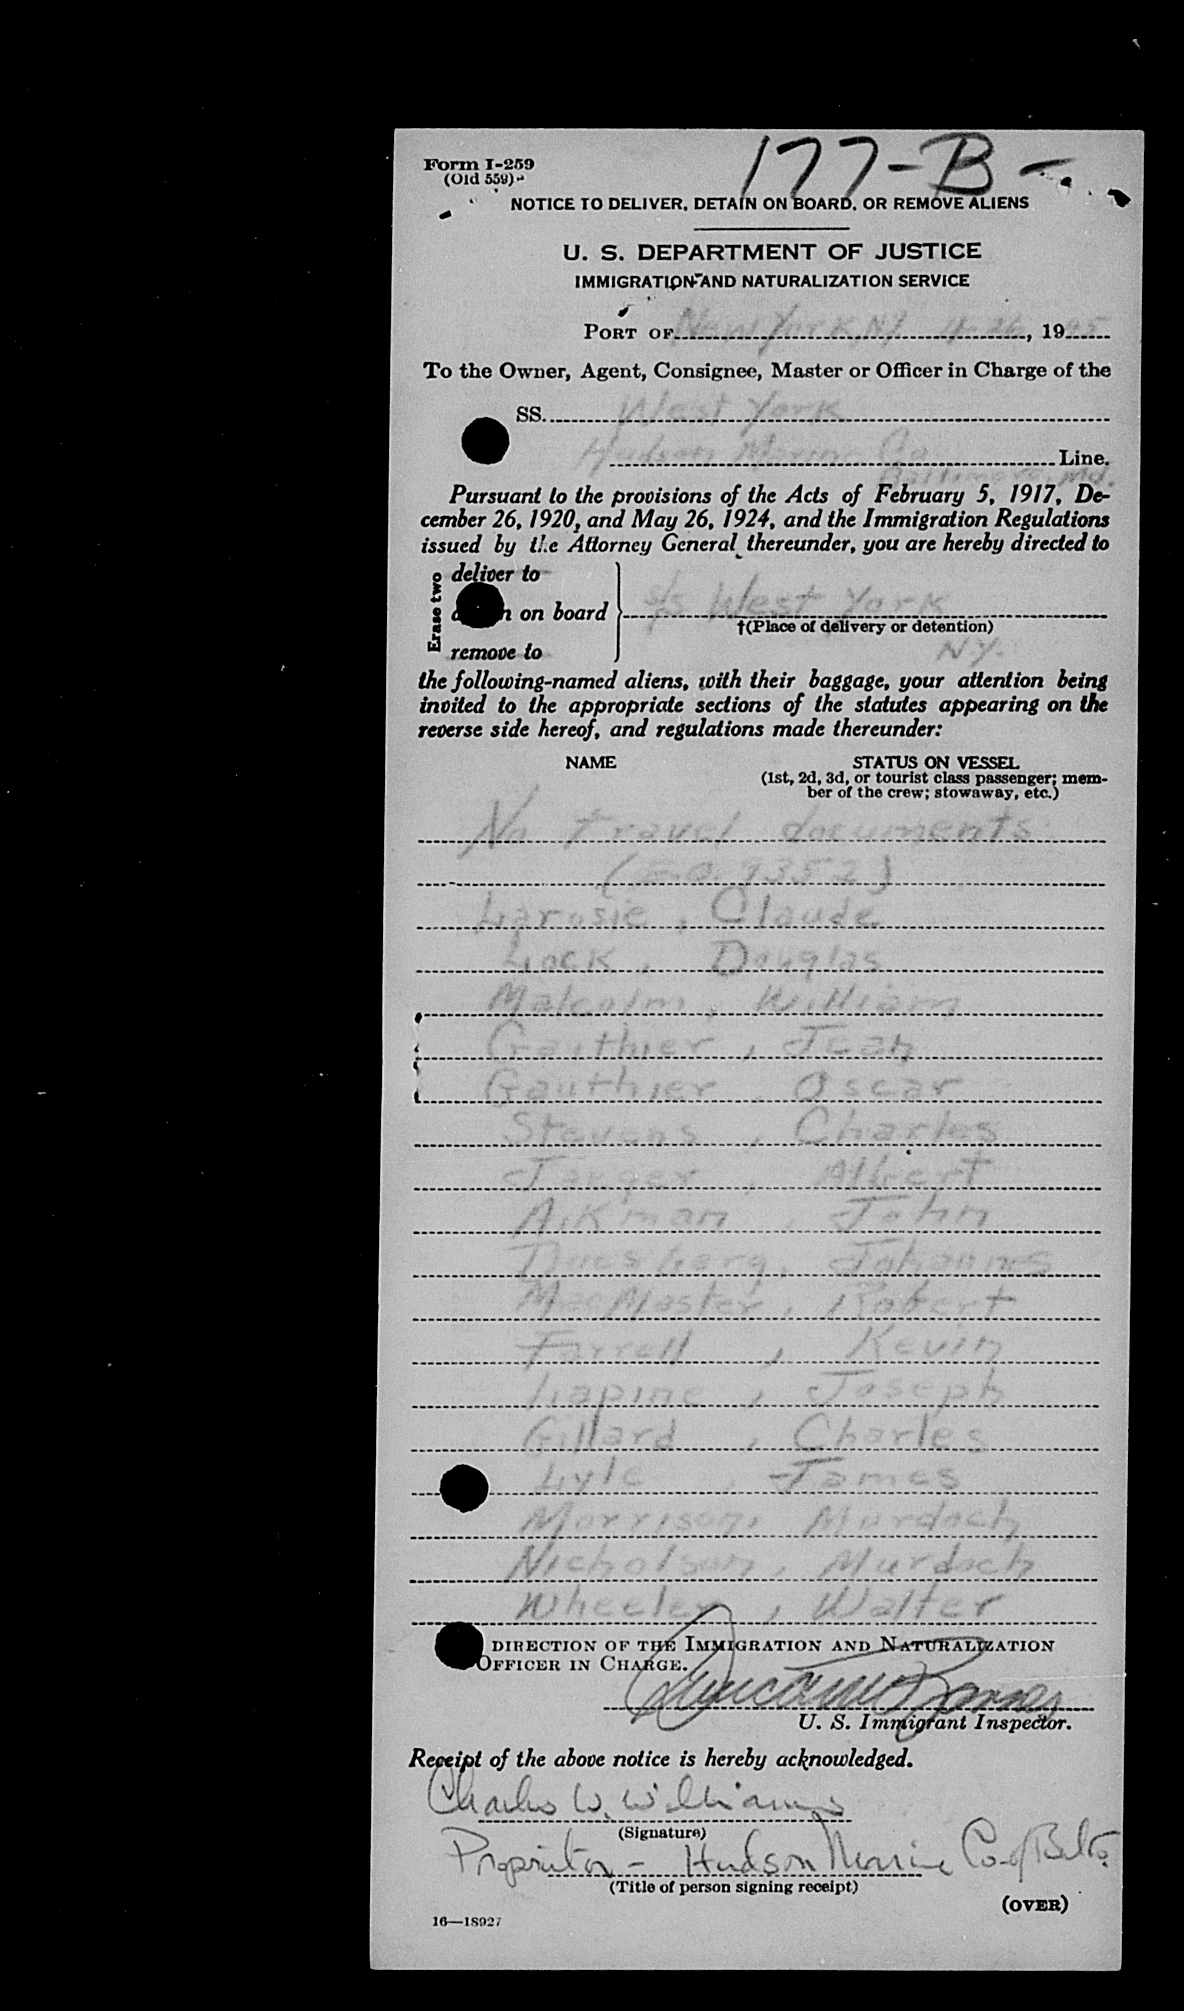 177-B
Form I-259
(Old 559)
NOTICE TO DELIVER, DETAIN ON BOARD, OR REMOVE ALIENS
U. S. DEPARTMENT OF JUSTICE
IMMIGRATION AND NATURALIZATION SERVICE
PORT OF New York, NY 11-26, 1945
To the Owner, Agent, Consignee, Master or Officer in Charge of the
SS. West York
Hudson Marine Co Line.
Baltimore, Md.
Pursuant to the provisions of the Acts of February 5, 1917, De-
cember 26, 1920, and May 26, 1924, and the Immigration Regulations
issued by the Attorney General thereunder, you are hereby directed to
Erase two
deliver to
on board
remove to
s/s West York
†(Place of delivery or detention)
N.Y.
the following-named aliens, with their baggage, your attention being
invited to the appropriate sections of the statutes appearing on the
reverse side hereof, and regulations made thereunder:
NAME STATUS ON VESSEL
(1st, 2d, 3d, or tourist class passenger; mem-
ber of the crew; stowaway, etc.)
No travel documents
(E.O. 9352)
Larosie, Claude
Lock, Douglas
Malcolm, William
Gauthier, Jean
Gauthier, Oscar
Stevens, Charles
Albert
Aikman, John
Johannes
MacMaster, Robert
Farrell, Kevin
Lapine, Joseph
Gillard, Charles
Lyle, James
Morrison, Murdoch
Nicholson, Murdoch
Wheeler, Walter
DIRECTION OF THE IMMIGRATION AND NATURALIZATION
OFFICER IN CHARGE.
U. S. Immigrant Inspector.
Receipt of the above notice is hereby acknowledged.
Charles W. Williams
(Signature)
Proprietor - Hudson Marine Co of Balto.
(Title of person signing receipt)
(OVER)
16—18927